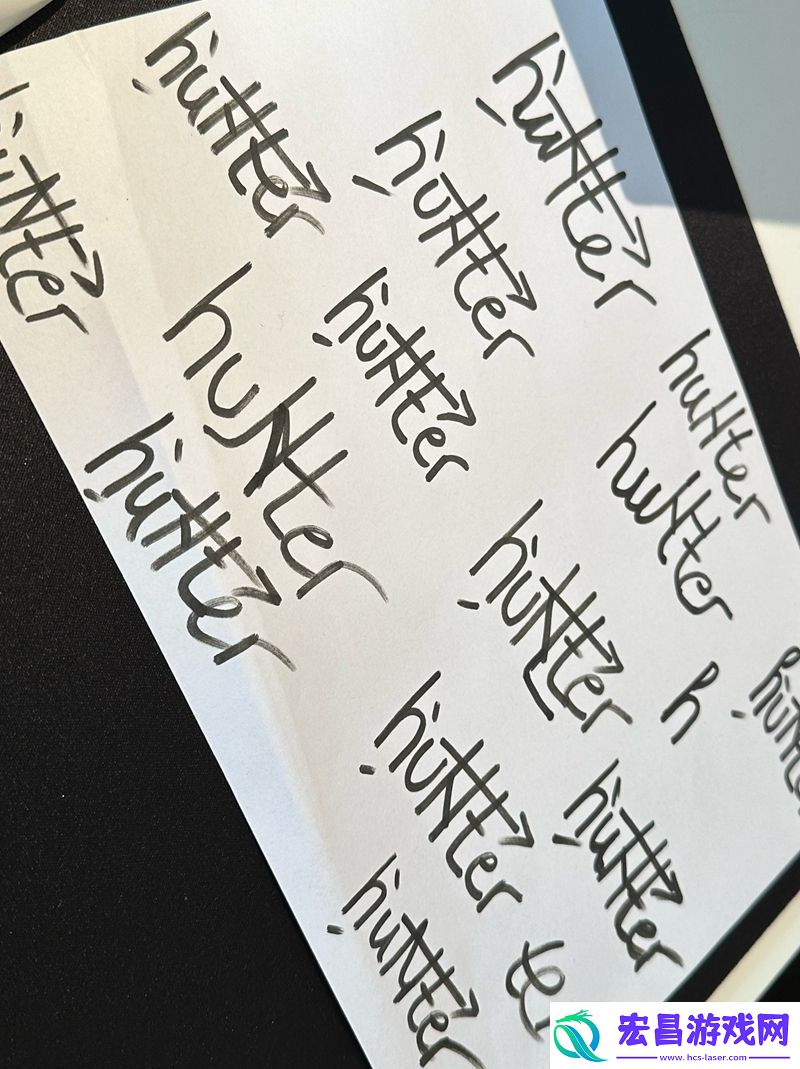 hunter
hunter
hunter
hunter
hunter
hunter
hunter
hunter
hunter
hunter
hunter
h
hunter
hunter
hunter
hunter
te
宏昌游戏网
www.hcs-laser.com